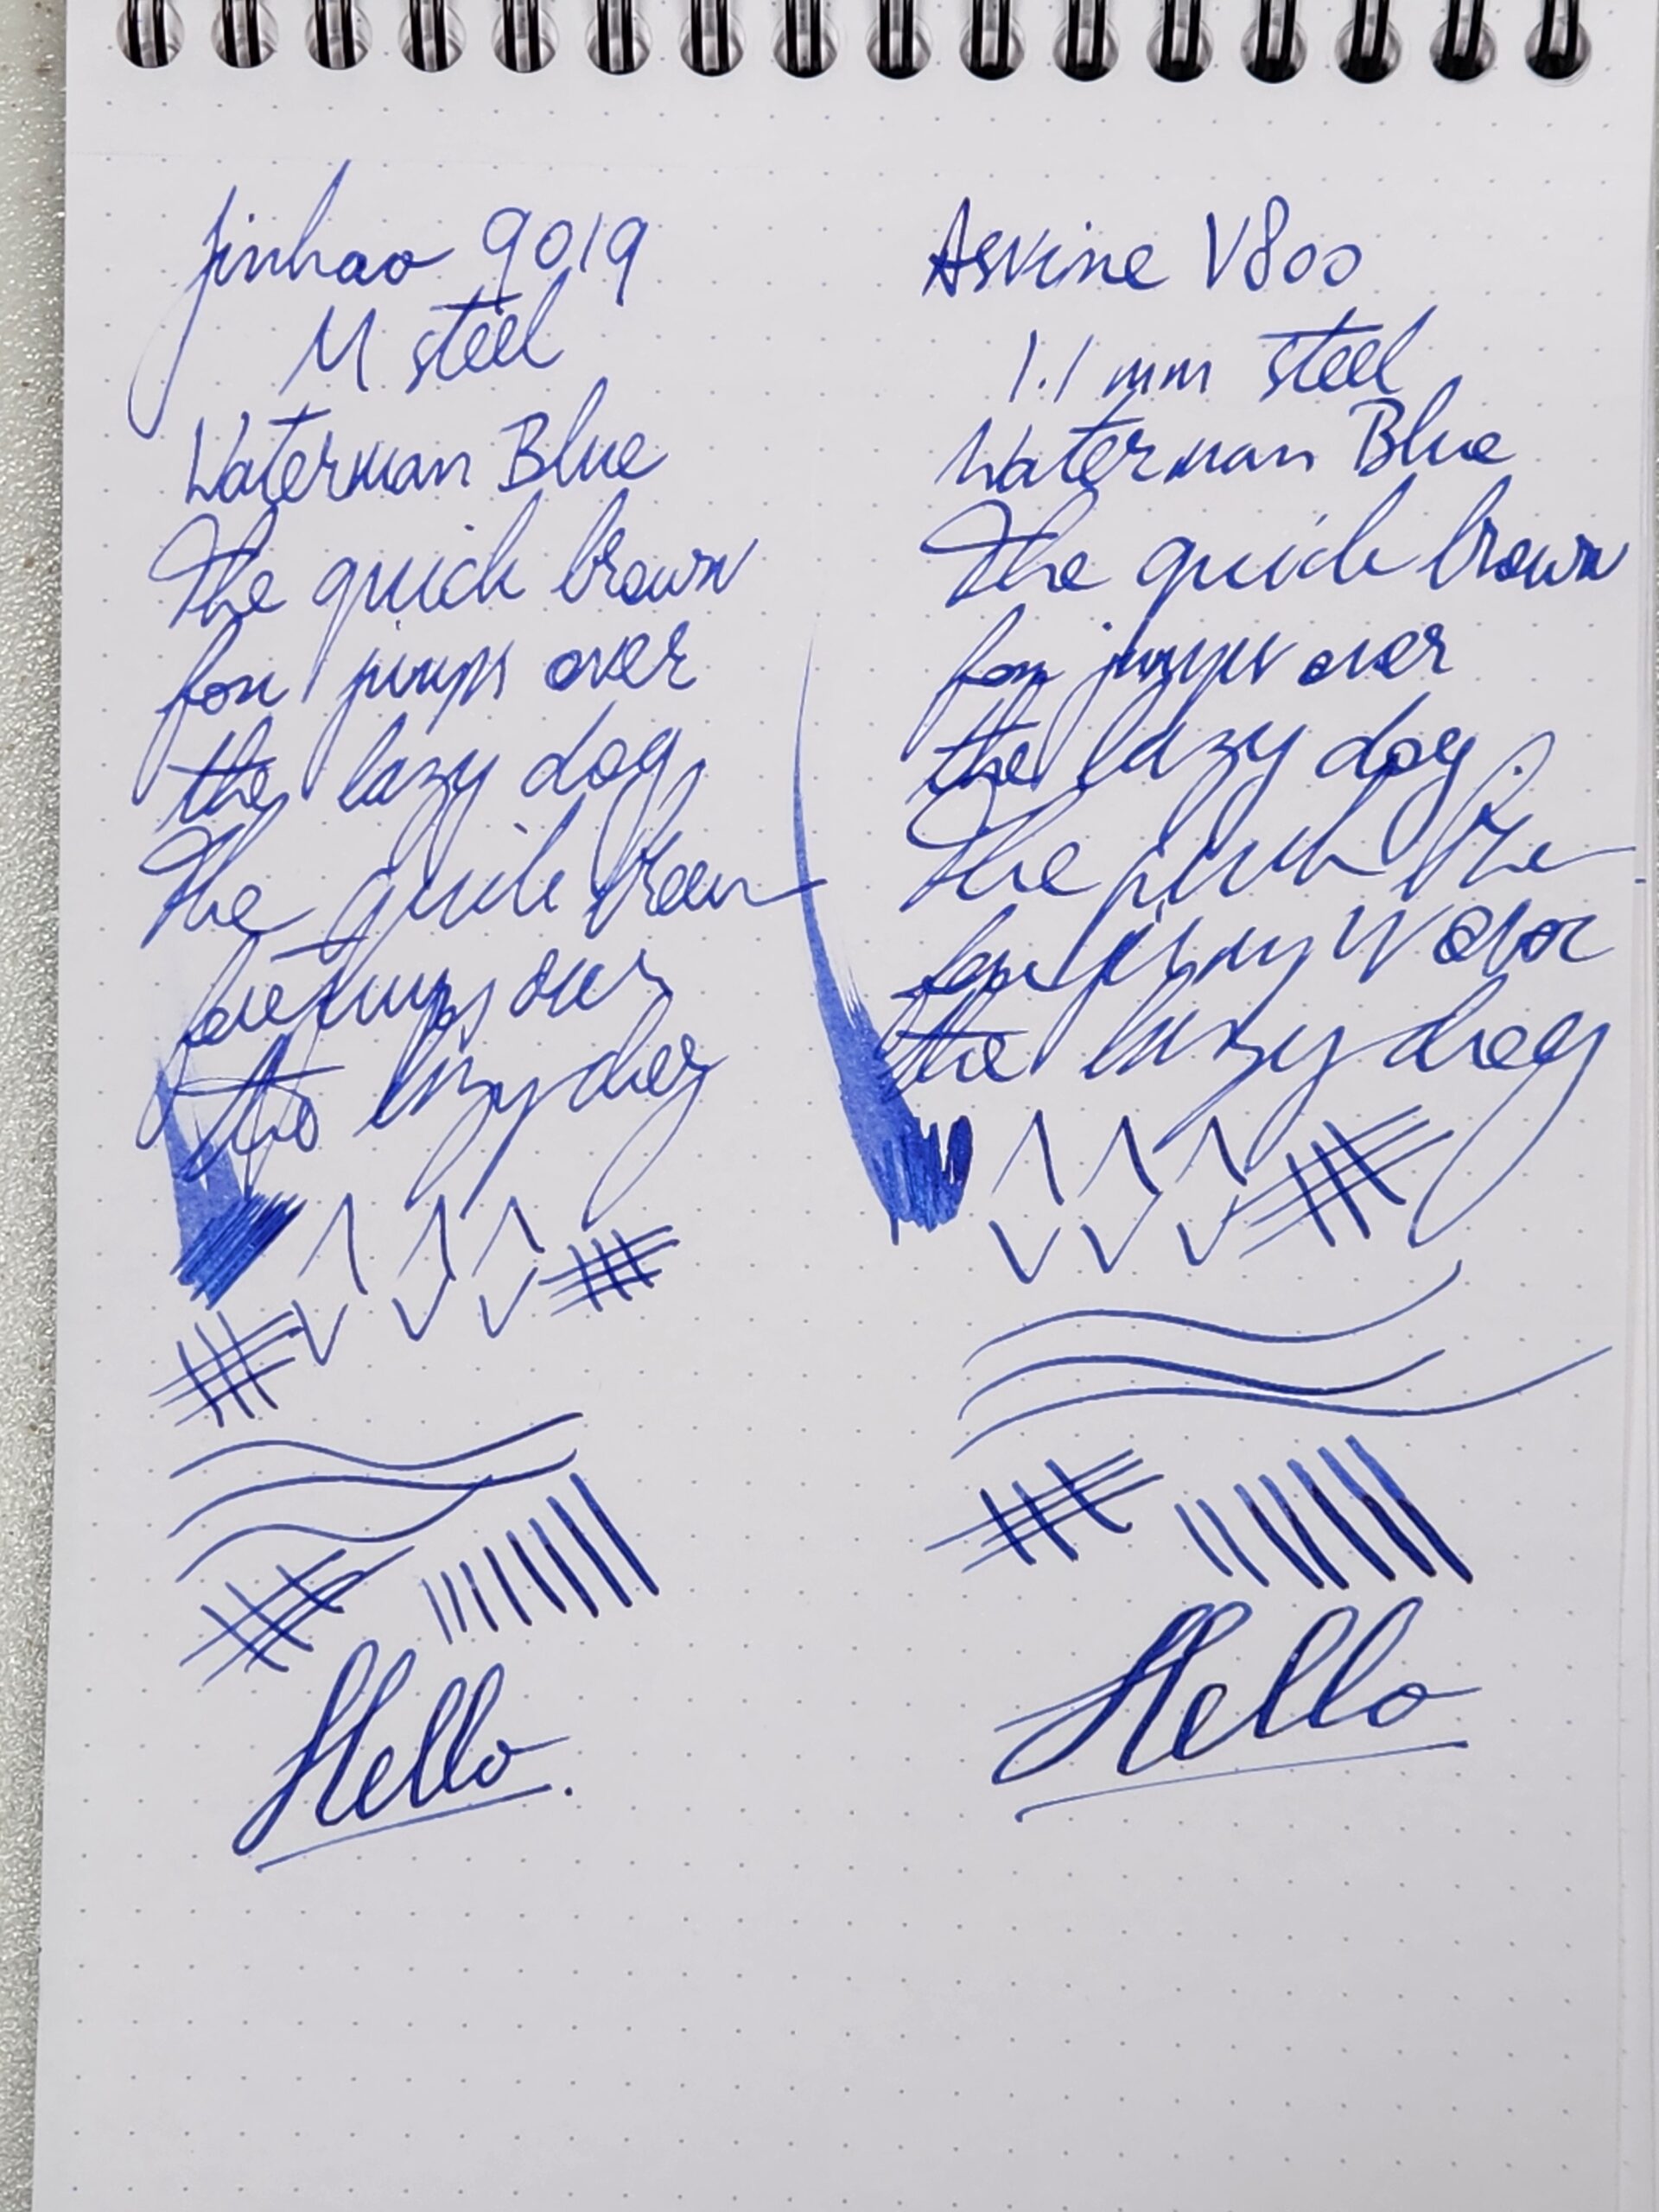 Jinhao 9019
M steel
Waterman Blue
The quick brown
fox jumps over
the lazy dog
The quick brown
fox jumps over
the lazy dog
Hello.
Asvine V800
1.1 mm steel
Waterman Blue
The quick brown
fox jumps over
the lazy dog.
The quick
fox jumps over
the lazy dog
Hello